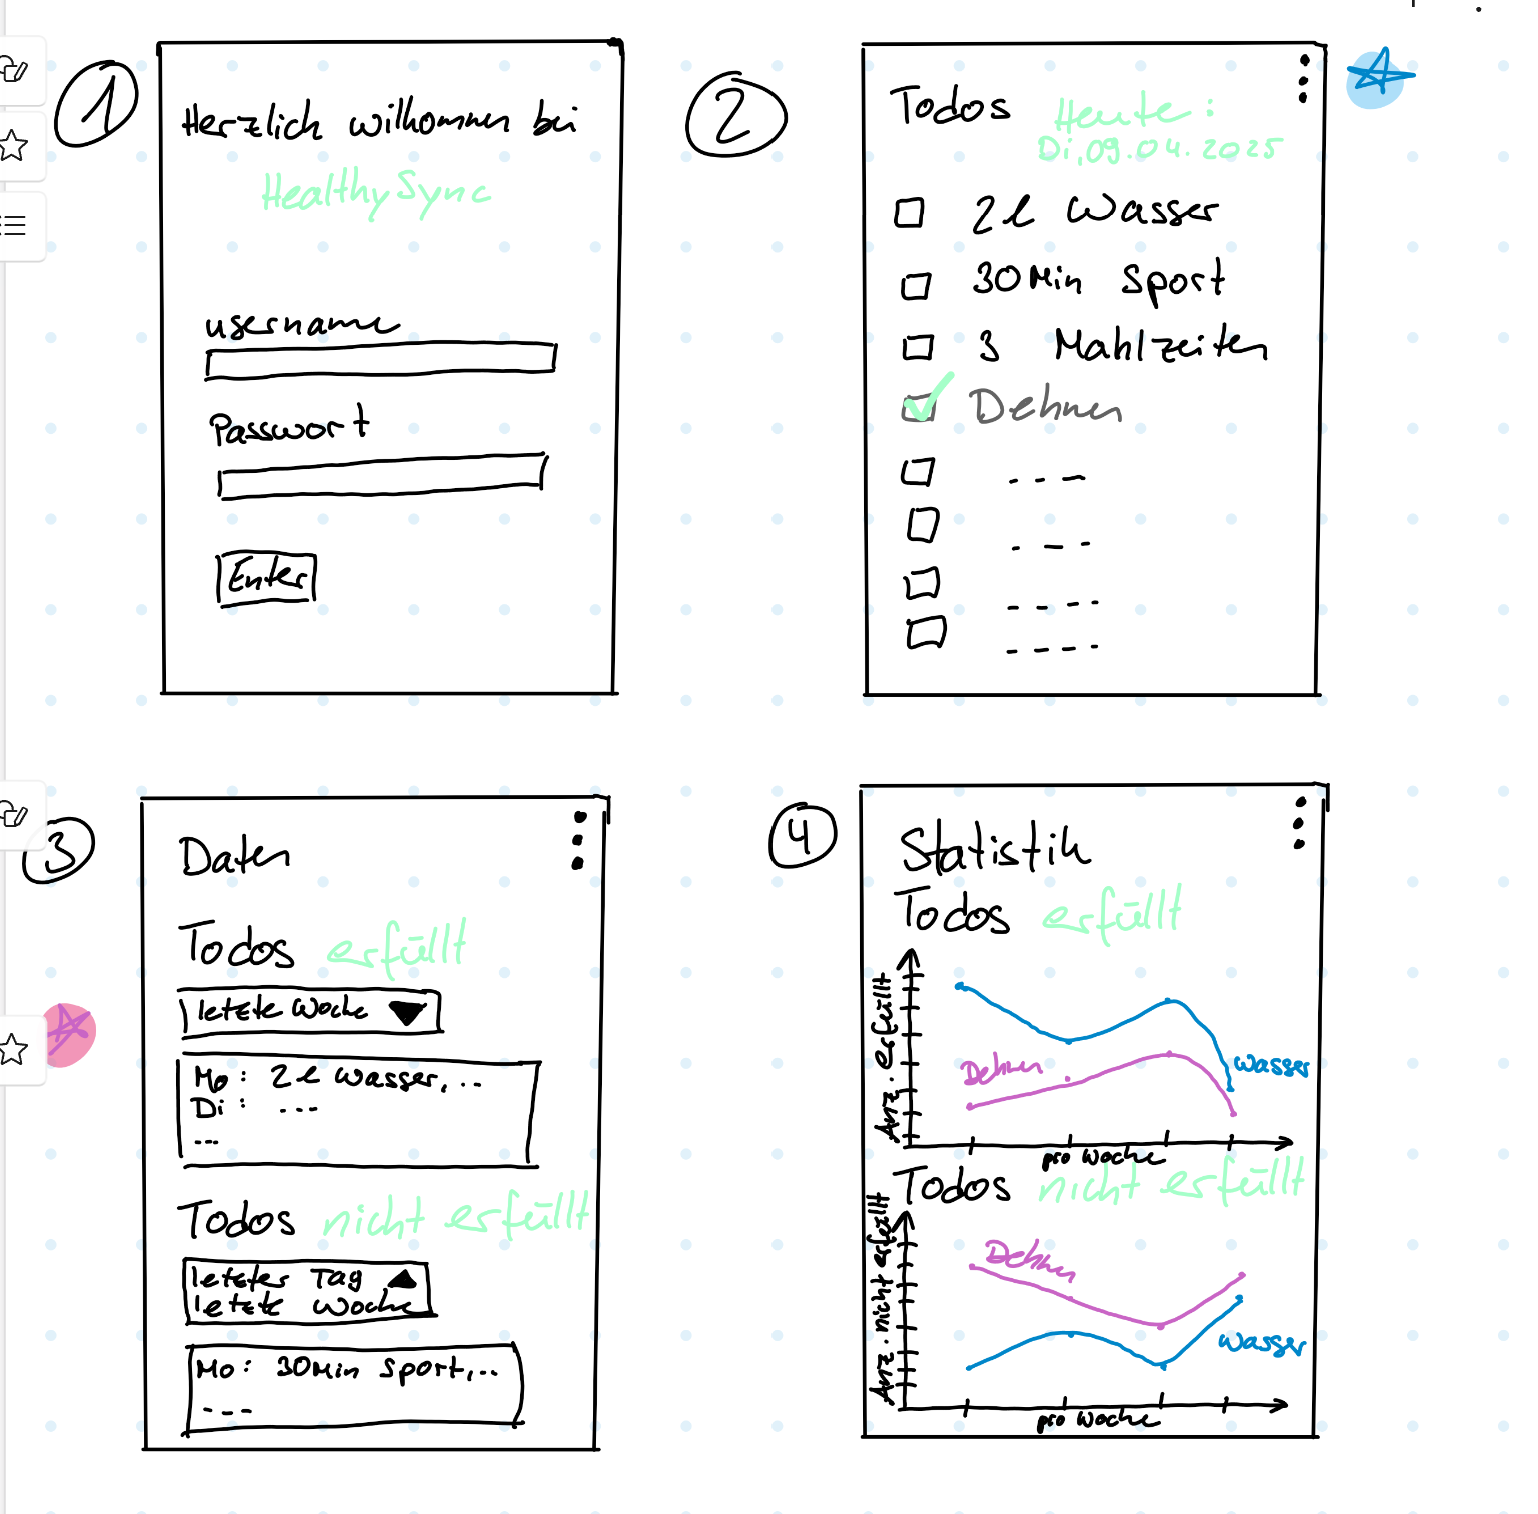 1
Herzlich willkommen bei
HealthySync
username
Passwort
Enter
2
Todos Heute:
Di, 09.04.2025
2l Wasser
30Min Sport
3 Mahlzeiten
Dehnen
- - -
- - -
- - - -
- - - -
3
Daten
Todos erfüllt
letzte Woche
Mo: 2l Wasser, ..
Di: ...
...
Todos nicht erfüllt
letzter Tag
letzte Woche
Mo: 30Min Sport,...
- - -
4
Statistik
Todos erfüllt
Anz. erfüllt
Dehnen
Wasser
pro Woche
Todos nicht erfüllt
Anz. nicht erfüllt
Dehnen
Wasser
pro Woche